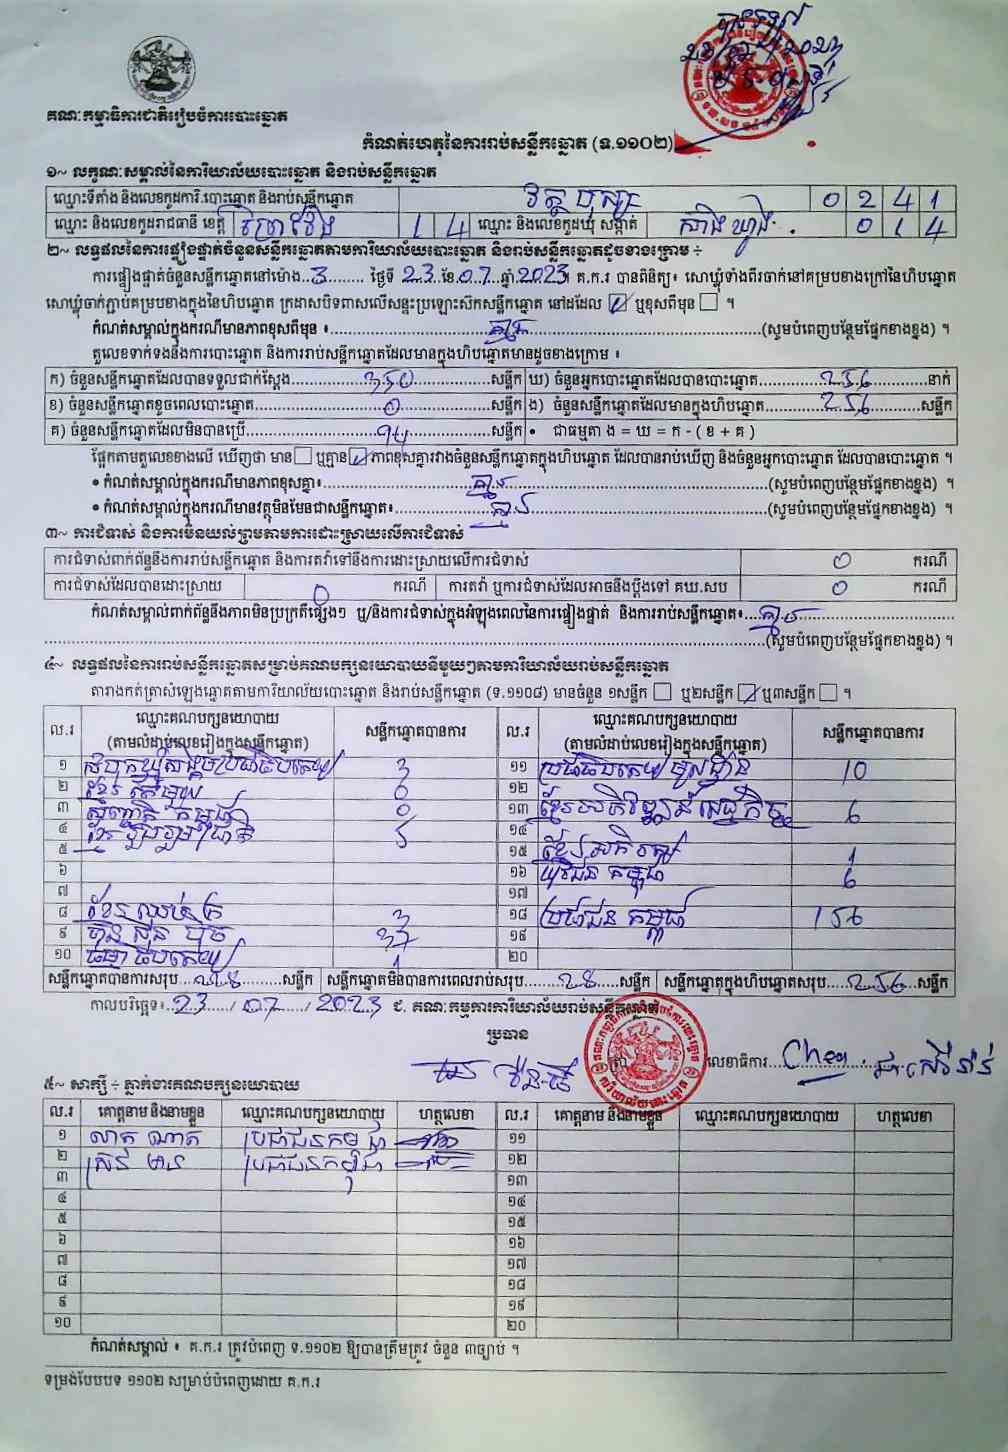 គណៈកម្មាធិការជាតិរៀបចំការបោះឆ្នោត
កំណត់ហេតុនៃការរាប់សន្លឹកឆ្នោត (ទ.១១០២)
១~ លក្ខណៈសម្គាល់នៃការិយាល័យបោះឆ្នោត និងរាប់សន្លឹកឆ្នោត
ឈ្មោះទីតាំង និងលេខកូដការិ.បោះឆ្នោត និងរាប់សន្លឹកឆ្នោត វត្ត 0 2 4 1
ឈ្មោះ និងលេខកូដរាជធានី ខេត្ត ព្រៃវែង 1 4 ឈ្មោះ និងលេខកូដឃុំ សង្កាត់ 0 1 4
២~ លទ្ធផលនៃការផ្ទៀងផ្ទាត់ចំនួនសន្លឹកឆ្នោតតាមការិយាល័យបោះឆ្នោត និងរាប់សន្លឹកឆ្នោតដូចខាងក្រោម ÷
ការផ្ទៀងផ្ទាត់ចំនួនសន្លឹកឆ្នោតនៅម៉ោង 3 ថ្ងៃទី 23 ខែ 07 ឆ្នាំ 2023 គ.ក.រ បានពិនិត្យ៖ សោឃ្លុំទាំងពីរចាក់នៅគម្របខាងក្រៅនៃហិបឆ្នោត
សោឃ្លុំចាក់ភ្ជាប់គម្របខាងក្នុងនៃហិបឆ្នោត ក្រដាសបិទពាសលើសន្ទះប្រឡោះស៊កសន្លឹកឆ្នោត នៅដដែល ឬខុសពីមុន ។
កំណត់សម្គាល់ក្នុងករណីមានភាពខុសពីមុន ៖ គ្មាន (សូមបំពេញបន្ថែមផ្នែកខាងខ្នង) ។
តួលេខទាក់ទងនឹងការបោះឆ្នោត និងការរាប់សន្លឹកឆ្នោតដែលមានក្នុងហិបឆ្នោតមានដូចខាងក្រោម ៖
ក) ចំនួនសន្លឹកឆ្នោតដែលបានទទួលជាក់ស្តែង 350 សន្លឹក ឃ) ចំនួនអ្នកបោះឆ្នោតដែលបានបោះឆ្នោត 256 នាក់
ខ) ចំនួនសន្លឹកឆ្នោតខូចពេលបោះឆ្នោត 0 សន្លឹក ង) ចំនួនសន្លឹកឆ្នោតដែលមានក្នុងហិបឆ្នោត 256 សន្លឹក
គ) ចំនួនសន្លឹកឆ្នោតដែលមិនបានប្រើ 94 សន្លឹក • ជាធម្មតា ង = ឃ = ក - ( ខ + គ )
ផ្អែកតាមតួលេខខាងលើ ឃើញថា មាន ឬគ្មាន ភាពខុសគ្នារវាងចំនួនសន្លឹកឆ្នោតក្នុងហិបឆ្នោត ដែលបានរាប់ឃើញ និងចំនួនអ្នកបោះឆ្នោត ដែលបានបោះឆ្នោត ។
• កំណត់សម្គាល់ក្នុងករណីមានភាពខុសគ្នា៖ គ្មាន (សូមបំពេញបន្ថែមផ្នែកខាងខ្នង) ។
• កំណត់សម្គាល់ក្នុងករណីមានវត្ថុមិនមែនជាសន្លឹកឆ្នោត៖ គ្មាន (សូមបំពេញបន្ថែមផ្នែកខាងខ្នង) ។
៣~ ការជំទាស់ និងការមិនយល់ព្រមតាមការដោះស្រាយលើការជំទាស់
ការជំទាស់ពាក់ព័ន្ធនឹងការរាប់សន្លឹកឆ្នោត និងការតវ៉ាទៅនឹងការដោះស្រាយលើការជំទាស់ 0 ករណី
ការជំទាស់ដែលបានដោះស្រាយ 0 ករណី ការតវ៉ា ឬការជំទាស់ដែលអាចនឹងប្តឹងទៅ គឃ.សប 0 ករណី
កំណត់សម្គាល់ពាក់ព័ន្ធនឹងភាពមិនប្រក្រតីផ្សេងៗ ឬ/និងការជំទាស់ក្នុងអំឡុងពេលនៃការផ្ទៀងផ្ទាត់ និងការរាប់សន្លឹកឆ្នោត៖ គ្មាន
(សូមបំពេញបន្ថែមផ្នែកខាងខ្នង) ។
៤~ លទ្ធផលនៃការរាប់សន្លឹកឆ្នោតសម្រាប់គណបក្សនយោបាយនីមួយៗតាមការិយាល័យរាប់សន្លឹកឆ្នោត
តារាងកត់ត្រាសំឡេងឆ្នោតតាមការិយាល័យបោះឆ្នោត និងរាប់សន្លឹកឆ្នោត (ទ.១១០៨) មានចំនួន ១សន្លឹក ឬ២សន្លឹក ឬ៣សន្លឹក ។
ល.រ ឈ្មោះគណបក្សនយោបាយ (តាមលំដាប់លេខរៀងក្នុងសន្លឹកឆ្នោត) សន្លឹកឆ្នោតបានការ ល.រ ឈ្មោះគណបក្សនយោបាយ (តាមលំដាប់លេខរៀងក្នុងសន្លឹកឆ្នោត) សន្លឹកឆ្នោតបានការ
១ សំបុកឃ្មុំសង្គមប្រជាធិបតេយ្យ 3 ១១ ប្រជាធិបតេយ្យមូលដ្ឋាន 10
២ ខ្មែរតែមួយ 0 ១២
៣ កម្ពុជា 0 ១៣ ខ្មែរអភិវឌ្ឍន៍សេដ្ឋកិច្ច 6
៤ ខ្មែររួបរួមជាតិ 5 ១៤
៥ ១៥ ខ្មែរអភិរក្ស 1
៦ ១៦ យុវជនកម្ពុជា 6
៧ ១៧
៨ ខ្មែរឈប់ក្រ 3 ១៨ ប្រជាជនកម្ពុជា 156
៩ ហ៊្វុនស៊ិនប៉ិច 37 ១៩
១០ ធម្មាធិបតេយ្យ 1 ២០
សន្លឹកឆ្នោតបានការសរុប 228 សន្លឹក សន្លឹកឆ្នោតមិនបានការពេលរាប់សរុប 28 សន្លឹក សន្លឹកឆ្នោតក្នុងហិបឆ្នោតសរុប 256 សន្លឹក
កាលបរិច្ឆេទ៖ 23 / 07 / 2023 ជ. គណៈកម្មការការិយាល័យរាប់សន្លឹកឆ្នោត
ប្រធាន
លេខាធិការ
៥~ សាក្សី ÷ ភ្នាក់ងារគណបក្សនយោបាយ
ល.រ គោត្តនាម និងនាមខ្លួន ឈ្មោះគណបក្សនយោបាយ ហត្ថលេខា ល.រ គោត្តនាម និងនាមខ្លួន ឈ្មោះគណបក្សនយោបាយ ហត្ថលេខា
១ ប្រជាជនកម្ពុជា ១១
២ ប្រជាជនកម្ពុជា ១២
៣ ១៣
៤ ១៤
៥ ១៥
៦ ១៦
៧ ១៧
៨ ១៨
៩ ១៩
១០ ២០
កំណត់សម្គាល់ ៖ គ.ក.រ ត្រូវបំពេញ ទ.១១០២ ឱ្យបានត្រឹមត្រូវ ចំនួន ៣ច្បាប់ ។
ទម្រង់បែបបទ ១១០២ សម្រាប់បំពេញដោយ គ.ក.រ